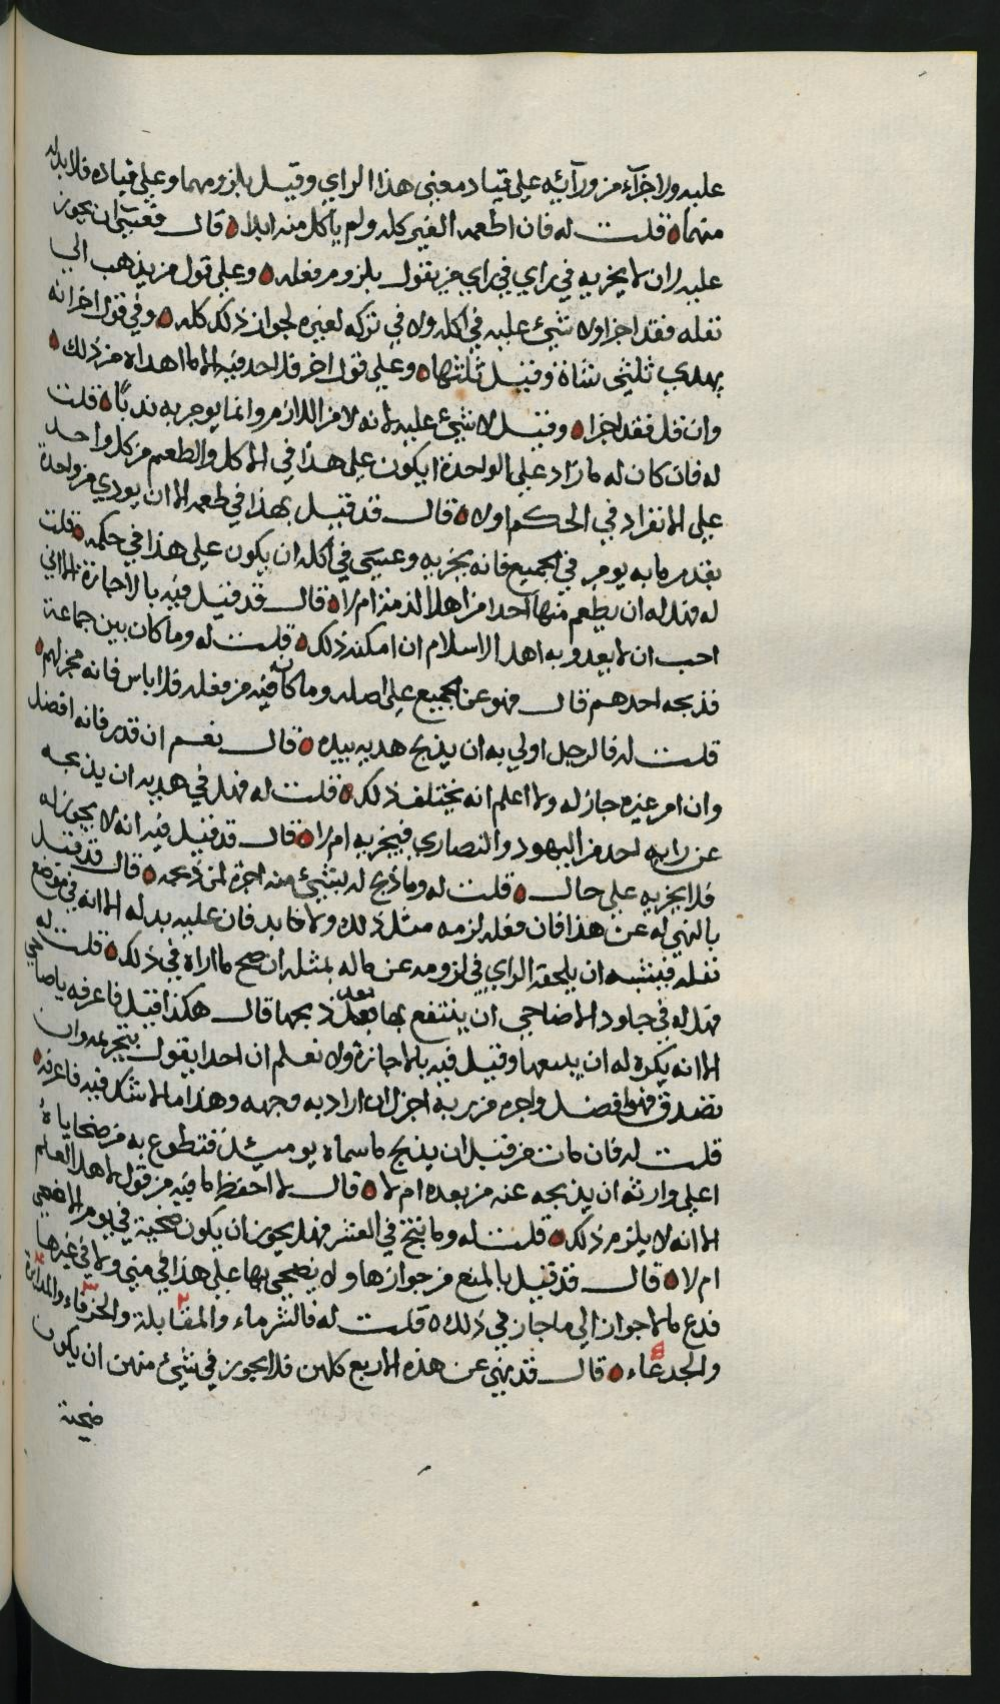 عليه ولا جزآء من ورآئه على قياد معنى هذا الراي وقيل بلزومهما وعلى قياده فلا بد له
منهما ه قلت له فان اطعمه الغير كله ولم يأكل منه ابدا ه قال فعسى ان يجوز
عليه لان لا يجزيه في راي في راي من يقول بلزوم فعله ه وعلى قول من يذهب الى
نفله فقد اجزا ولا شيئ عليه في اكله ولا في تركه لغيره لجواز ذلك كله ه وفي قول اخر انه
يهدي ثلثي شاة وقيل ثلثها ه وعلى قول اخر فلا حد فيه الا ما اهداه من ذلك ه
وان قل فقد اجزاه ه وقيل لا شيئ عليه لانه لا من اللازم وانما يومر به ندبًا ه قلت
له فان كان له ما زاد على الواحدة ايكون على هذا في الاكل والطعم من كل واحد
على الانفراد في الحكم اولا ه قال قد قيل بهذا في طعمه الا ان يودي من واحدة
بقدر ما به يومر في الجميع فانه يجزيه وعسى في اكله ان يكون على هذا في حكمه ه قلت
له فهل له ان يطعم منها احدا من اهل الذمة ام لا ه قال قد قيل فيه بالاجازة الا اني
احب ان لا يعدو به اهل الاسلام ان امكنه ذلك ه قلت له وما كان بين جماعة
فذبحه احدهم قال فهو عن الجميع على اصله وما كان فيه من فعله فلا باس فانه مجز لهم ه
قلت له فالرجل اولى به ان يذبح هديه بيده ه قال نعم ان قدر فانه افضل
وان امر غيره جاز له ولا اعلم انه يختلف في ذلك ه قلت له فهل في هديه ان يذبحه
عن رايه احد من اليهود والنصارى فيجزيه ام لا ه قال قد قيل فيه انه لا يجوز له
فلا يجزيه على حال ه قلت له وما ذبح له بشيئ منه اجرة لمن ذبحه ه قال قد قيل
بالنهي له عن هذا فان فعله لزمه مثل ذلك ولا فابد فان عليه بدله الا انه في موضع
نفله فيشبه ان يلحقه الراي في لزومه عن ماله بمثله ان صح ما اراه في ذلك ه قلت له
فهل له في جلود الاضاحي ان ينتفع بها بعد ذبحها قال هكذا قيل فاعرفه يا صاحبي
الا انه يكره له ان يبيعها وقيل فيه بالاجازة ولا نعلم ان احدا يقول بتحريمه وان
تصدق فهو افضل واجره من ربه اجزل ان اراد به وجهه وهذا ما لا شك فيه فاعرفه ه
قلت له فان مات من قبل ان يذبح ما سماه يوميئذ فتطوع به من ضحاياه
اعلى وارثه ان يذبحه عنه من بعده ام لا ه قال لا احفظ ما فيه من قول لاهل العلم
الا انه لا يلزم ذلك ه قلت له وما نتج في العشر فهل يجوز ان يكون ضحية في يوم الاضحى
ام لا ه قال قد قيل بالمنع من جوازها ولا يضحى بها على هذا في منى ولا في غيرها
فدع ما لا جواز الى ما جاز في ذلك ه قلت له فالشرماء والمقابلة والخرقاء والمدابرة
والجدعاء ه قال قد نهي عن هذه الاربع كلهن فلا يجوز في شيئ منهن ان يكون
ضحية